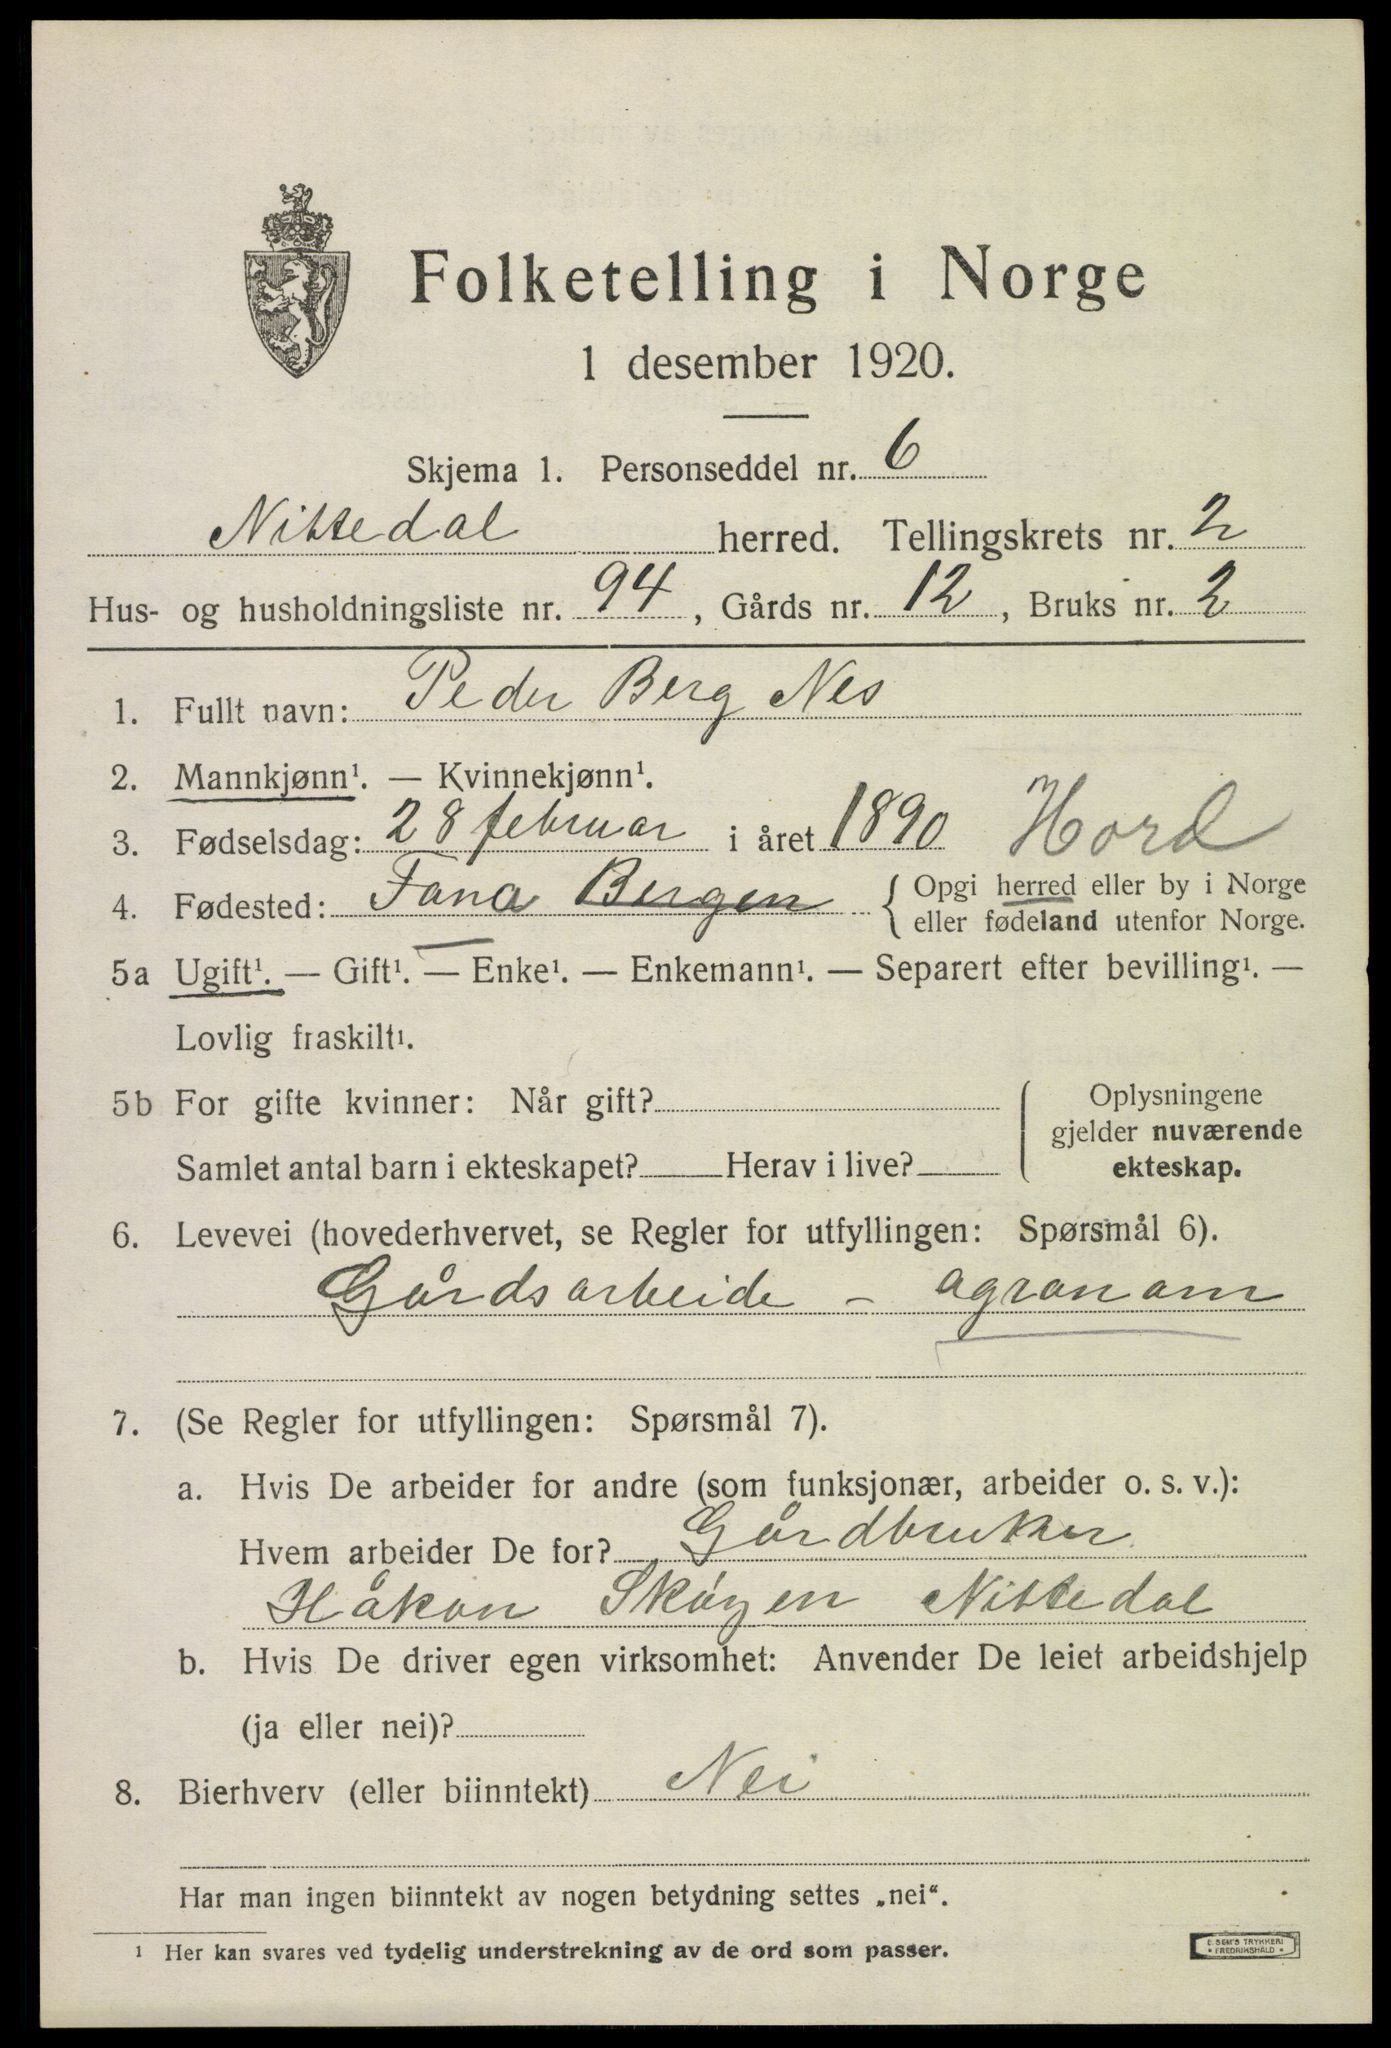 Folketelling i Norge
1 desember 1920.
Skjema 1. Personseddel nr. 6
Nittedal herred. Tellingskrets nr. 2
Hus- og husholdningsliste nr. 94, Gårds nr. 12, Bruks nr. 2
1. Fullt navn: Peder Berg Nes
2. Mannkjønn¹. — Kvinnekjønn¹.
3. Fødselsdag: 28 februar i året 1890 Hord
4. Fødested: Fana Bergen { Opgi herred eller by i Norge
eller fødeland utenfor Norge.
5a Ugift¹. — Gift¹. — Enke¹. — Enkemann¹. — Separert efter bevilling¹. —
Lovlig fraskilt¹.
5b For gifte kvinner: Når gift?
Samlet antal barn i ekteskapet? Herav i live?
Oplysningene
gjelder nuværende
ekteskap.
6. Levevei (hovederhvervet, se Regler for utfyllingen: Spørsmål 6).
Gårdsarbeide - agranam
7. (Se Regler for utfyllingen: Spørsmål 7).
a. Hvis De arbeider for andre (som funksjonær, arbeider o. s. v.):
Hvem arbeider De for? Gårdbruker
Håkon Skøyen Nittedal
b. Hvis De driver egen virksomhet: Anvender De leiet arbeidshjelp
(ja eller nei)?
8. Bierhverv (eller biinntekt) Nei
Har man ingen biinntekt av nogen betydning settes „nei“.
¹ Her kan svares ved tydelig understrekning av de ord som passer.
E. SEM'S TRYKKERI
• FREDRIKSHALD •